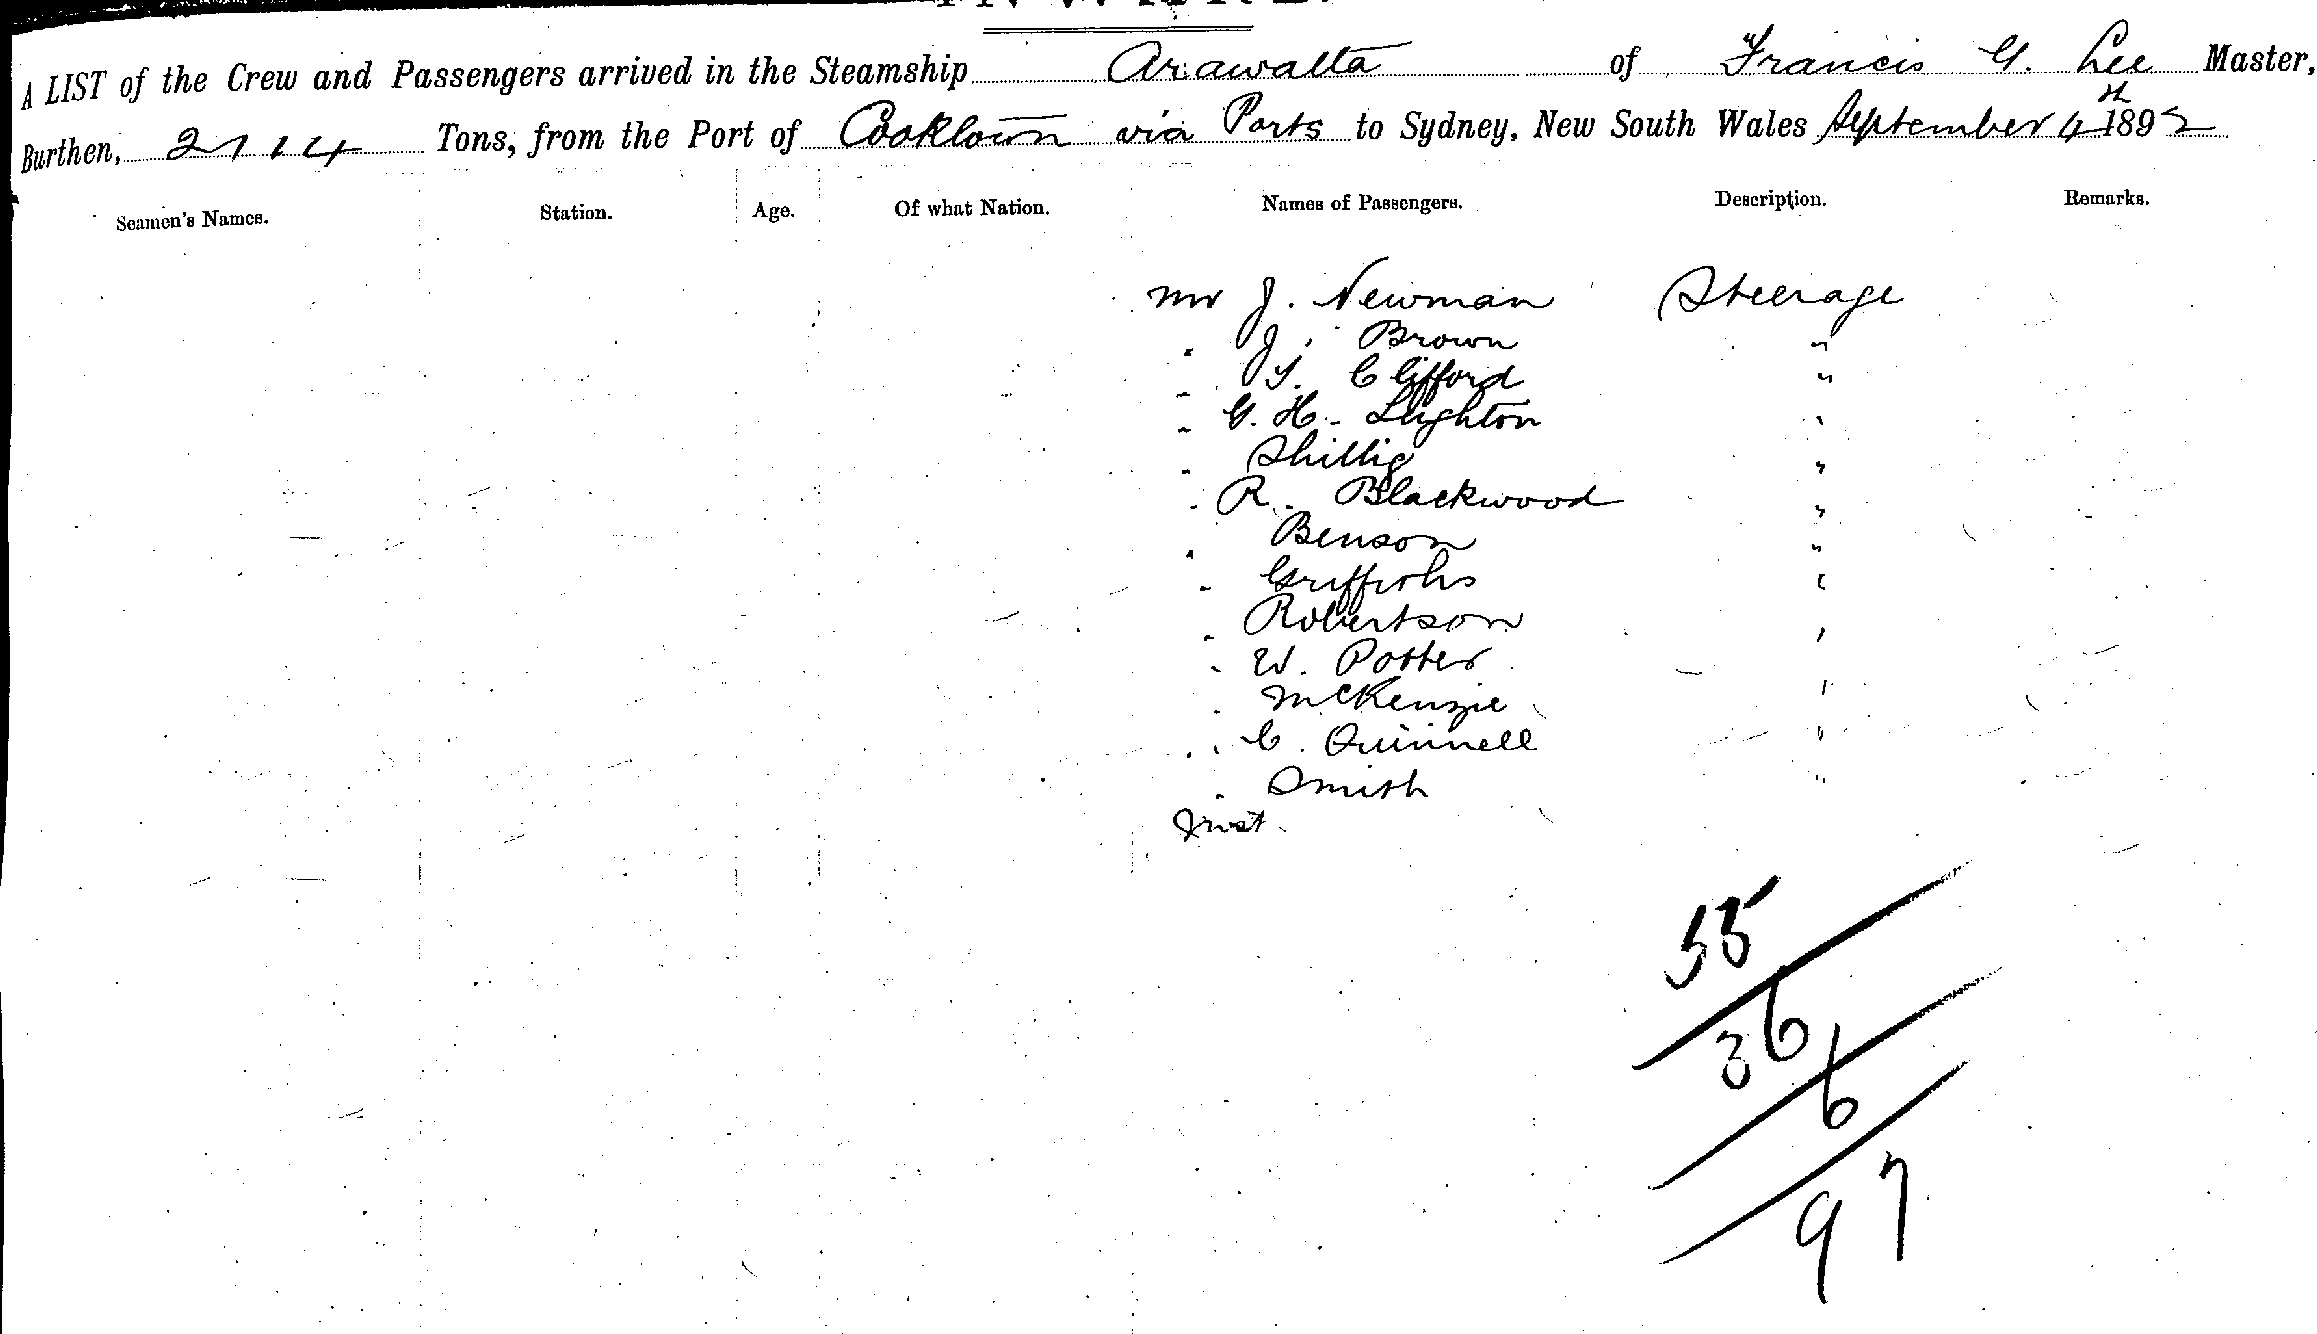 A LIST of the Crew and Passengers arrived in the Steamship Arawatta of Francis G. Lee Master,
Burthen, 2114 Tons, from the Port of Cooktown via Ports to Sydney, New South Wales September 4th 1892
Seamen's Names. Station. Age. Of what Nation. Names of Passengers. Description. Remarks.
Mr J. Newman Steerage
" J. Brown "
" S. Clifford "
" G. H. Leighton "
" Shillig "
" R. Blackwood "
" Benson "
" Griffiths "
" Robertson "
" W. Potter "
" McKenzie "
" C. Quinnell "
" Smith "
55
36
6
97